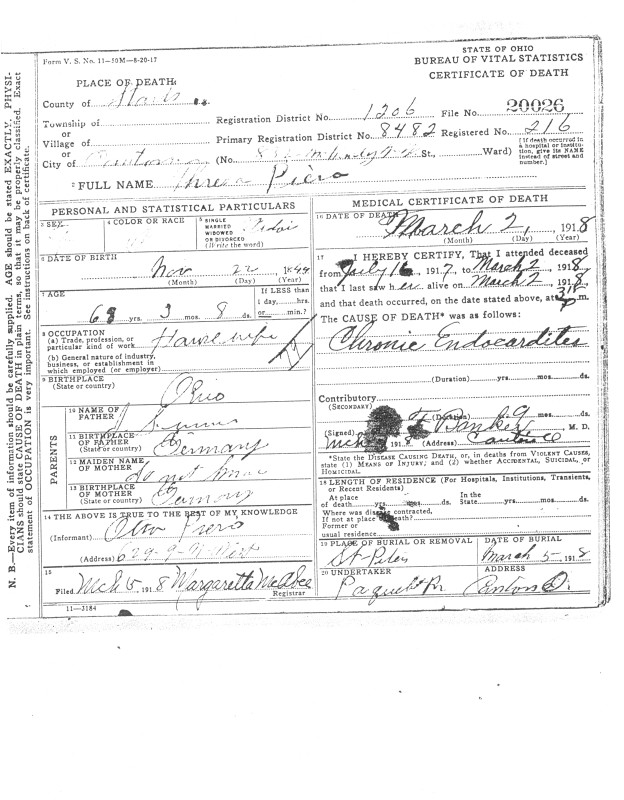 Form V. S. No. 11—50M—8-20-17
STATE OF OHIO
BUREAU OF VITAL STATISTICS
CERTIFICATE OF DEATH
PLACE OF DEATH:
County of Stark
Township of
or
Village of
or
City of Canton
Registration District No. 1206 File No. 20026
Primary Registration District No. 8482 Registered No. 216
(No. St., Ward)
[If death occurred in a hospital or institution, give its NAME instead of street and number.]
2 FULL NAME Theresa Piero
PERSONAL AND STATISTICAL PARTICULARS
3 SEX
4 COLOR OR RACE
5 SINGLE
MARRIED
WIDOWED
OR DIVORCED
(Write the word)
6 DATE OF BIRTH
Nov 22, 1849
(Month) (Day) (Year)
7 AGE
68 yrs. 3 mos. 8 ds.
If LESS than
1 day,.....hrs.
or.....min.?
8 OCCUPATION
(a) Trade, profession, or
particular kind of work Housewife
(b) General nature of industry,
business, or establishment in
which employed (or employer)
9 BIRTHPLACE
(State or country)
Ohio
PARENTS
10 NAME OF
FATHER
11 BIRTHPLACE
OF FATHER
(State or country)
Germany
12 MAIDEN NAME
OF MOTHER
do not know
13 BIRTHPLACE
OF MOTHER
(State or country)
Germany
14 THE ABOVE IS TRUE TO THE BEST OF MY KNOWLEDGE
(Informant) Piero
(Address)
15
Filed Mch 5 1918 Margaretta McAbee
Registrar
11—3184
MEDICAL CERTIFICATE OF DEATH
16 DATE OF DEATH
March 2, 1918
(Month) (Day) (Year)
17 I HEREBY CERTIFY, That I attended deceased
from July 16, 1917, to March 2, 1918,
that I last saw her alive on March 2, 1918,
and that death occurred, on the date stated above, at m.
The CAUSE OF DEATH* was as follows:
Chronic Endocarditis
(Duration) yrs. mos. ds.
Contributory
(SECONDARY)
(Duration) yrs. mos. ds.
(Signed) M. D.
Mch 191 (Address) Canton O
*State the DISEASE CAUSING DEATH, or, in deaths from VIOLENT CAUSES,
state (1) MEANS OF INJURY; and (2) whether ACCIDENTAL, SUICIDAL, or
HOMICIDAL.
18 LENGTH OF RESIDENCE (For Hospitals, Institutions, Transients,
or Recent Residents)
At place
of death yrs. mos. ds.
In the
State yrs. mos. ds.
Where was disease contracted,
If not at place of death?
Former or
usual residence
19 PLACE OF BURIAL OR REMOVAL
St Peters
DATE OF BURIAL
March 5 1918
20 UNDERTAKER
ADDRESS
Canton O.
N. B.—Every item of information should be carefully supplied. AGE should be stated EXACTLY. PHYSI-
CIANS should state CAUSE OF DEATH in plain terms, so that it may be properly classified. Exact
statement of OCCUPATION is very important. See instructions on back of certificate.